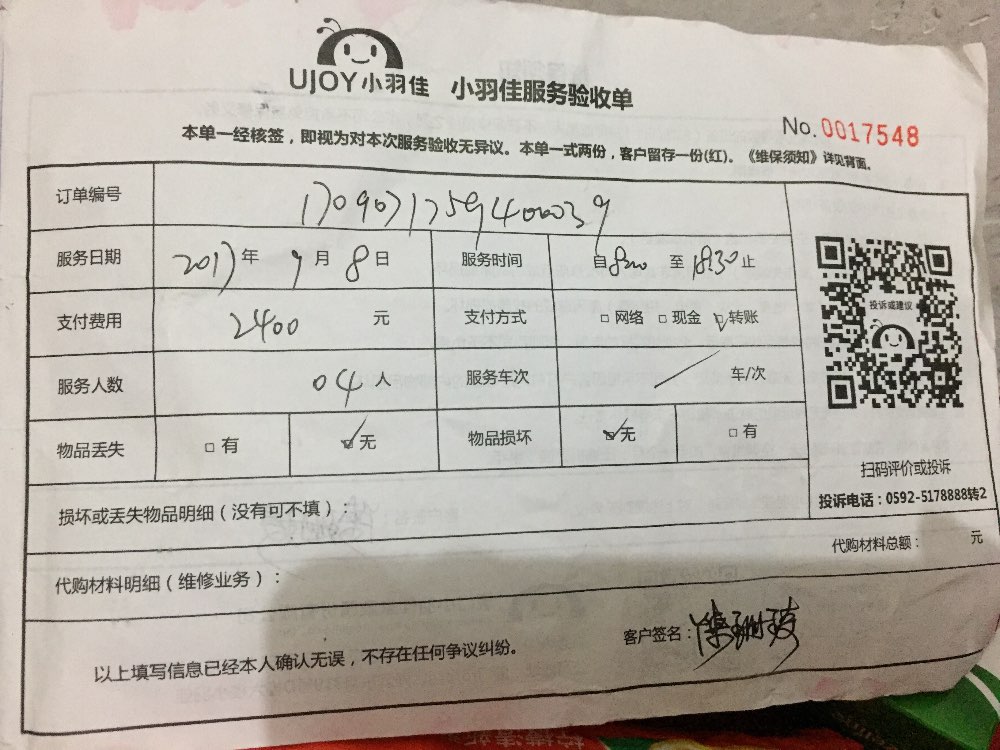 UJOY小羽佳 小羽佳服务验收单
No.0017548
本单一经核签，即视为对本次服务验收无异议。本单一式两份，客户留存一份(红)。《维保须知》详见背面。
订单编号 17090717594000039
服务日期 2017年9月8日 服务时间 自8:00至18:30止
支付费用 2400 元 支付方式 □网络 □现金 ☑转账
投诉或建议
服务人数 04人 服务车次 / 车/次
物品丢失 □有 ☑无 物品损坏 ☑无 □有
扫码评价或投诉
投诉电话：0592-5178888转2
损坏或丢失物品明细（没有可不填）：
代购材料总额： 元
代购材料明细（维修业务）：
客户签名：
以上填写信息已经本人确认无误，不存在任何争议纠纷。